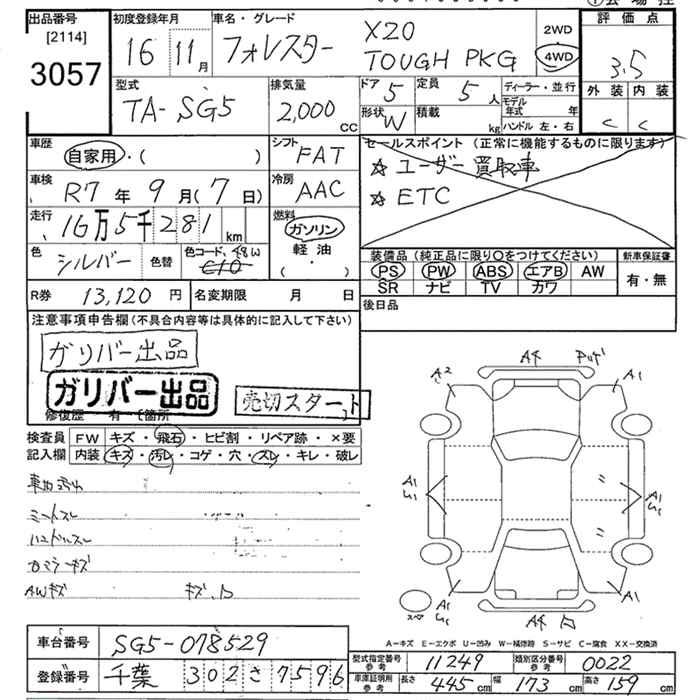 出品番号 [2114] 3057
初度登録年月 16 11月
車名・グレード フォレスター X20 TOUGH PKG
2WD 4WD
評価点 3.5
外装 内装 C C
型式 TA-SG5
排気量 2,000 CC
ドア 5 定員 5人
形状 W 積載 kg
ディーラー・並行
モデル年式 年
ハンドル 左・右
車歴 自家用・( )
シフト FAT
セールスポイント (正常に機能するものに限ります)
☆ユーザー買取車
☆ETC
車検 R7年9月(7日)
冷房 AAC
走行 16万5千281km
燃料 ガソリン 軽油 ( )
色 シルバー 色替 色コード 48W
装備品 (純正品に限り○をつけてください) 新車保証書
PS PW ABS エアB AW 有・無
SR ナビ TV カワ
R券 13,120円 名変期限 月 日
後日品
注意事項申告欄(不具合内容等は具体的に記入して下さい)
ガリバー出品
ガリバー出品
売切スタート
修復歴 有-(箇所
検査員 FW キズ・飛石・ヒビ割・リペア跡・×要
記入欄 内装 キズ・汚レ・コゲ・穴・スレ・キレ・破レ
シートスレ
ハンドルスレ
AWキズ
A2 A4 A1
A1 A1
A1 A4 A1
スペア
A-キズ E-エクボ U-凹み W-補修跡 S-サビ C-腐食 XX-交換済
車台番号 SG5-078529
登録番号 千葉 302 さ 7596
型式指定番号 参考 11249 類別区分番号 参考 0022
車庫証明用 参考 長さ 445cm 幅 173cm 高さ 159cm